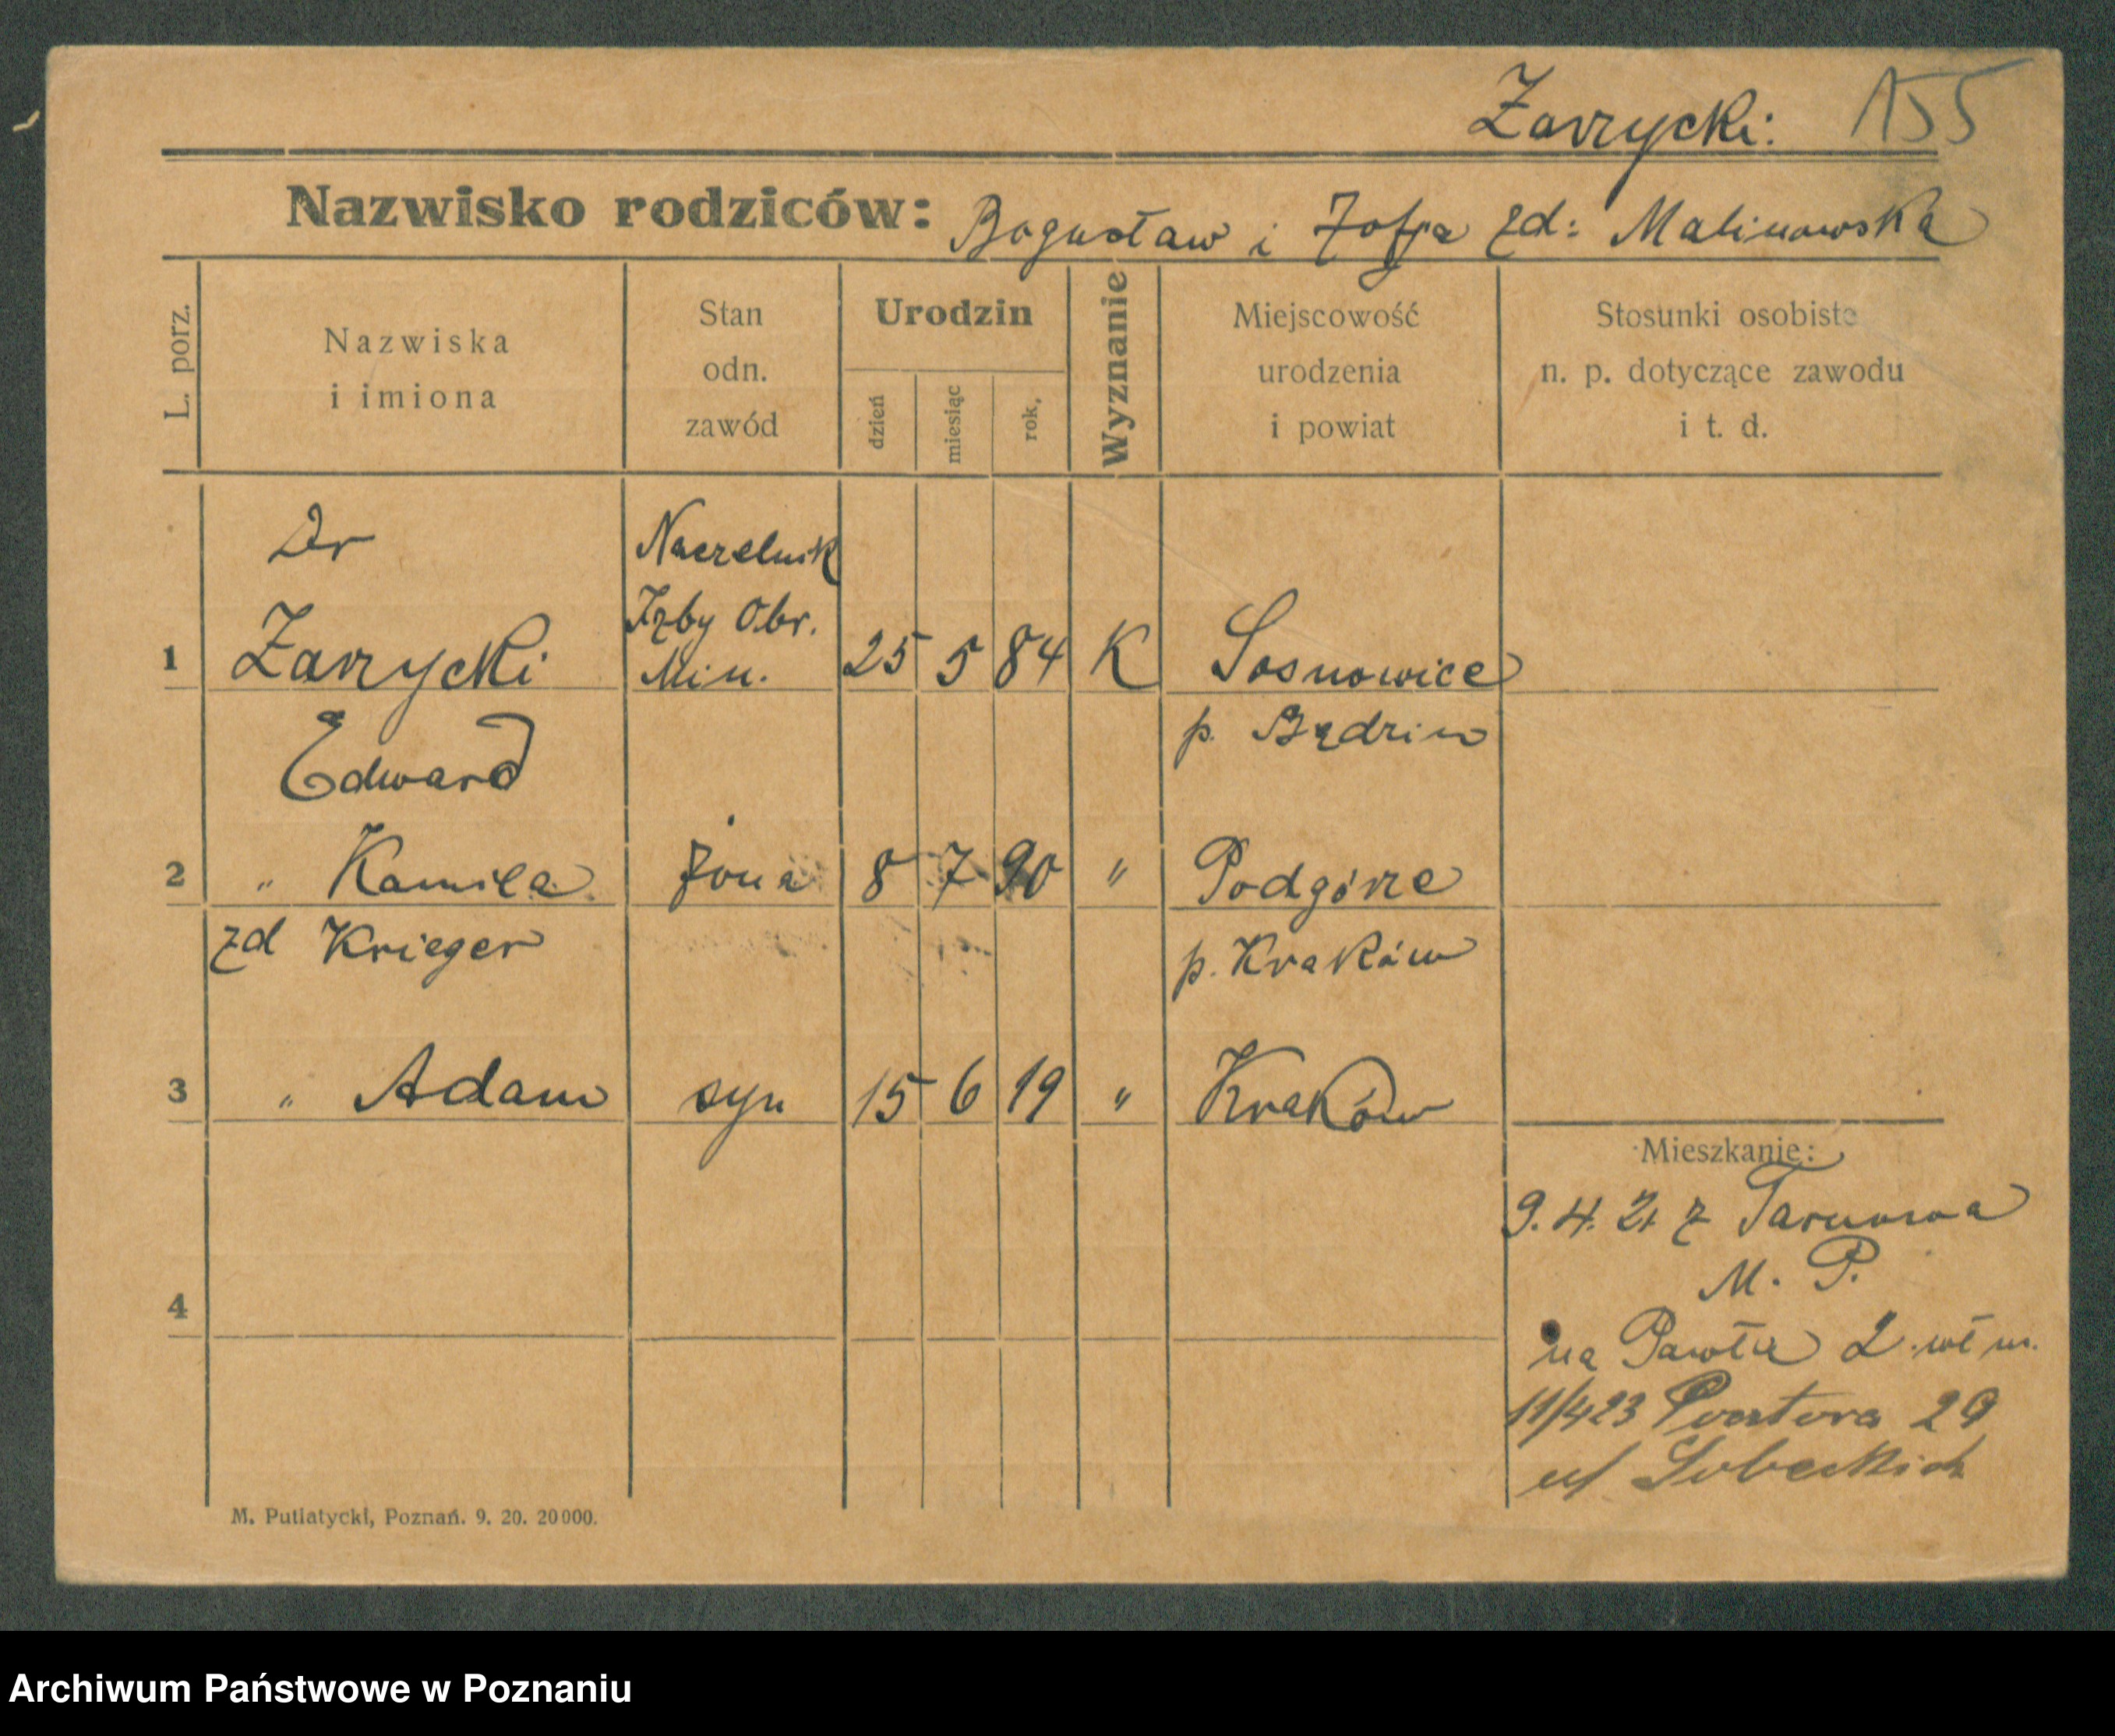 Zarzycki: 155
Nazwisko rodziców: Bogusław i Zofja zd: Malinowska
L. porz.
Nazwiska
i imiona
Stan
odn.
zawód
Urodzin
dzień
miesiąc
rok,
Wyznanie
Miejscowość
urodzenia
i powiat
Stosunki osobiste
n. p. dotyczące zawodu
i t. d.
Dr Naczelnik
Izby Obr.
1 Zarzycki Min. 25 5 84 K Sosnowice
Edward p. Będzin
2 " Kamila żona 8 7 90 " Podgórze
zd Krieger p. Kraków
3 " Adam syn 15 6 19 " Kraków
Mieszkanie:
9. 4. 21 z Tarnowa
M. P.
4
na Pawła 2
11/4 23 29
M. Putiatycki, Poznań. 9. 20. 20000.
Archiwum Państwowe w Poznaniu